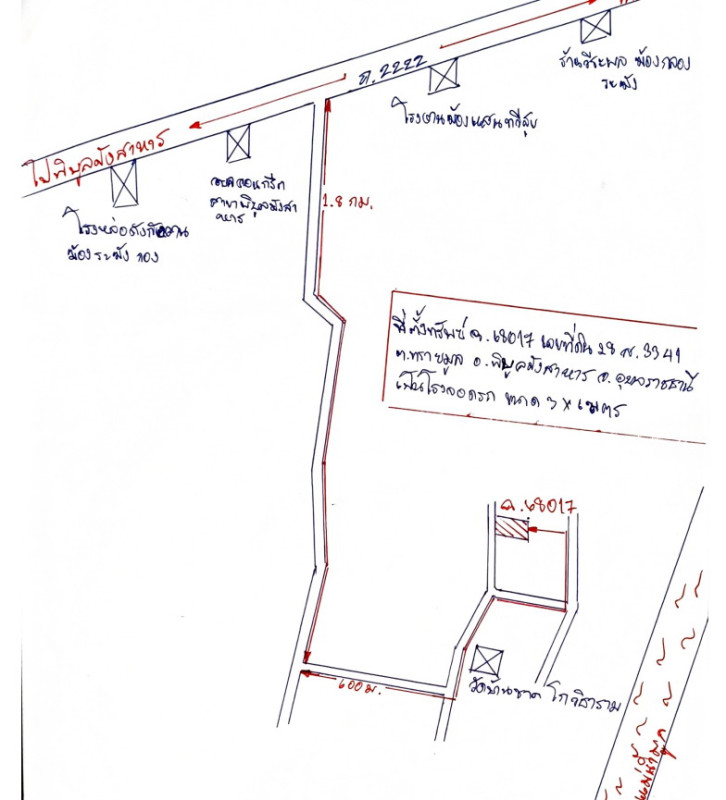 ถ.2222
ร้านวีระพล ฆ้องกลอง
ระฆัง
โรงงานฆ้องแสนทวีสุข
ไปพิบูลมังสาหาร
สาขาพิบูลมังสา
หาร
โรงหล่อ
ฆ้อง ระฆัง กอง
1.8 กม.
ที่ตั้งทรัพย์ ฉ.68017 เลขที่ดิน 28 ต.3341
ต.ทรายมูล อ.พิบูลมังสาหาร จ.อุบลราชธานี
เป็นโรงจอดรถ ขนาด เมตร
ฉ.68017
600 ม.
วัดบ้านขาด โกวิธาราม
แม่น้ำมูล